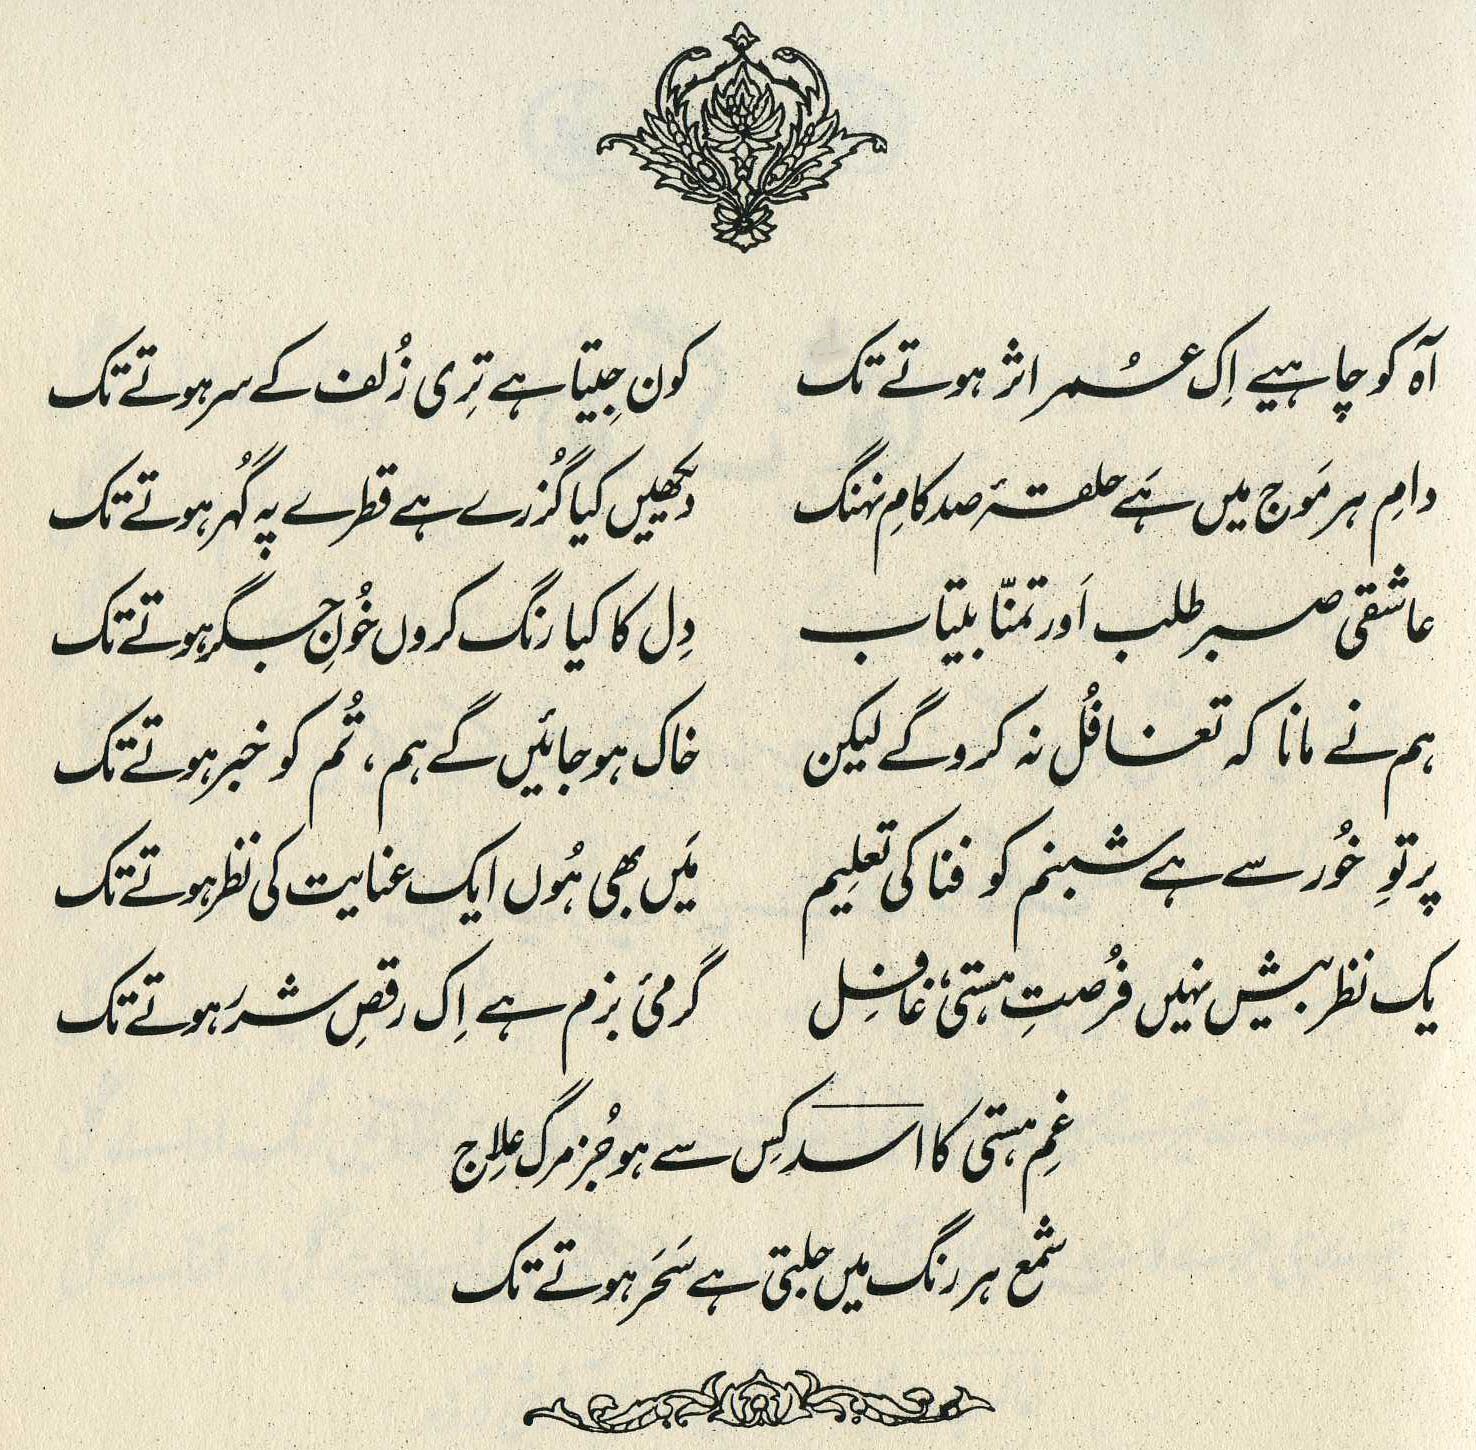 آہ کو چاہیے اِک عُمر اثر ہوتے تک کون جِیتا ہے تِری زُلف کے سر ہوتے تک
دامِ ہر مَوج میں ہَے حلقۂ صد کامِ نہنگ دیکھیں کیا گُزرے ہے قطرے پہ گُہر ہوتے تک
عاشقی صبر طلب اَور تمنّا بیتاب دِل کا کیا رنگ کروں خُونِ جگر ہوتے تک
ہم نے مانا کہ تغافُل نہ کرو گے لیکن خاک ہو جائیں گے ہم، تُم کو خبر ہوتے تک
پرتوِ خُور سے ہے شبنم کو فنا کی تعلِیم مَیں بھی ہُوں ایک عنایت کی نظر ہوتے تک
یک نظر بیش نہیں فُرصتِ ہستی، غافِل گرمیٔ بزم ہے اِک رقصِ شرر ہوتے تک
غمِ ہستی کا اسد کِس سے ہو جُز مرگ علاج
شمع ہر رنگ میں جلتی ہے سَحَر ہوتے تک